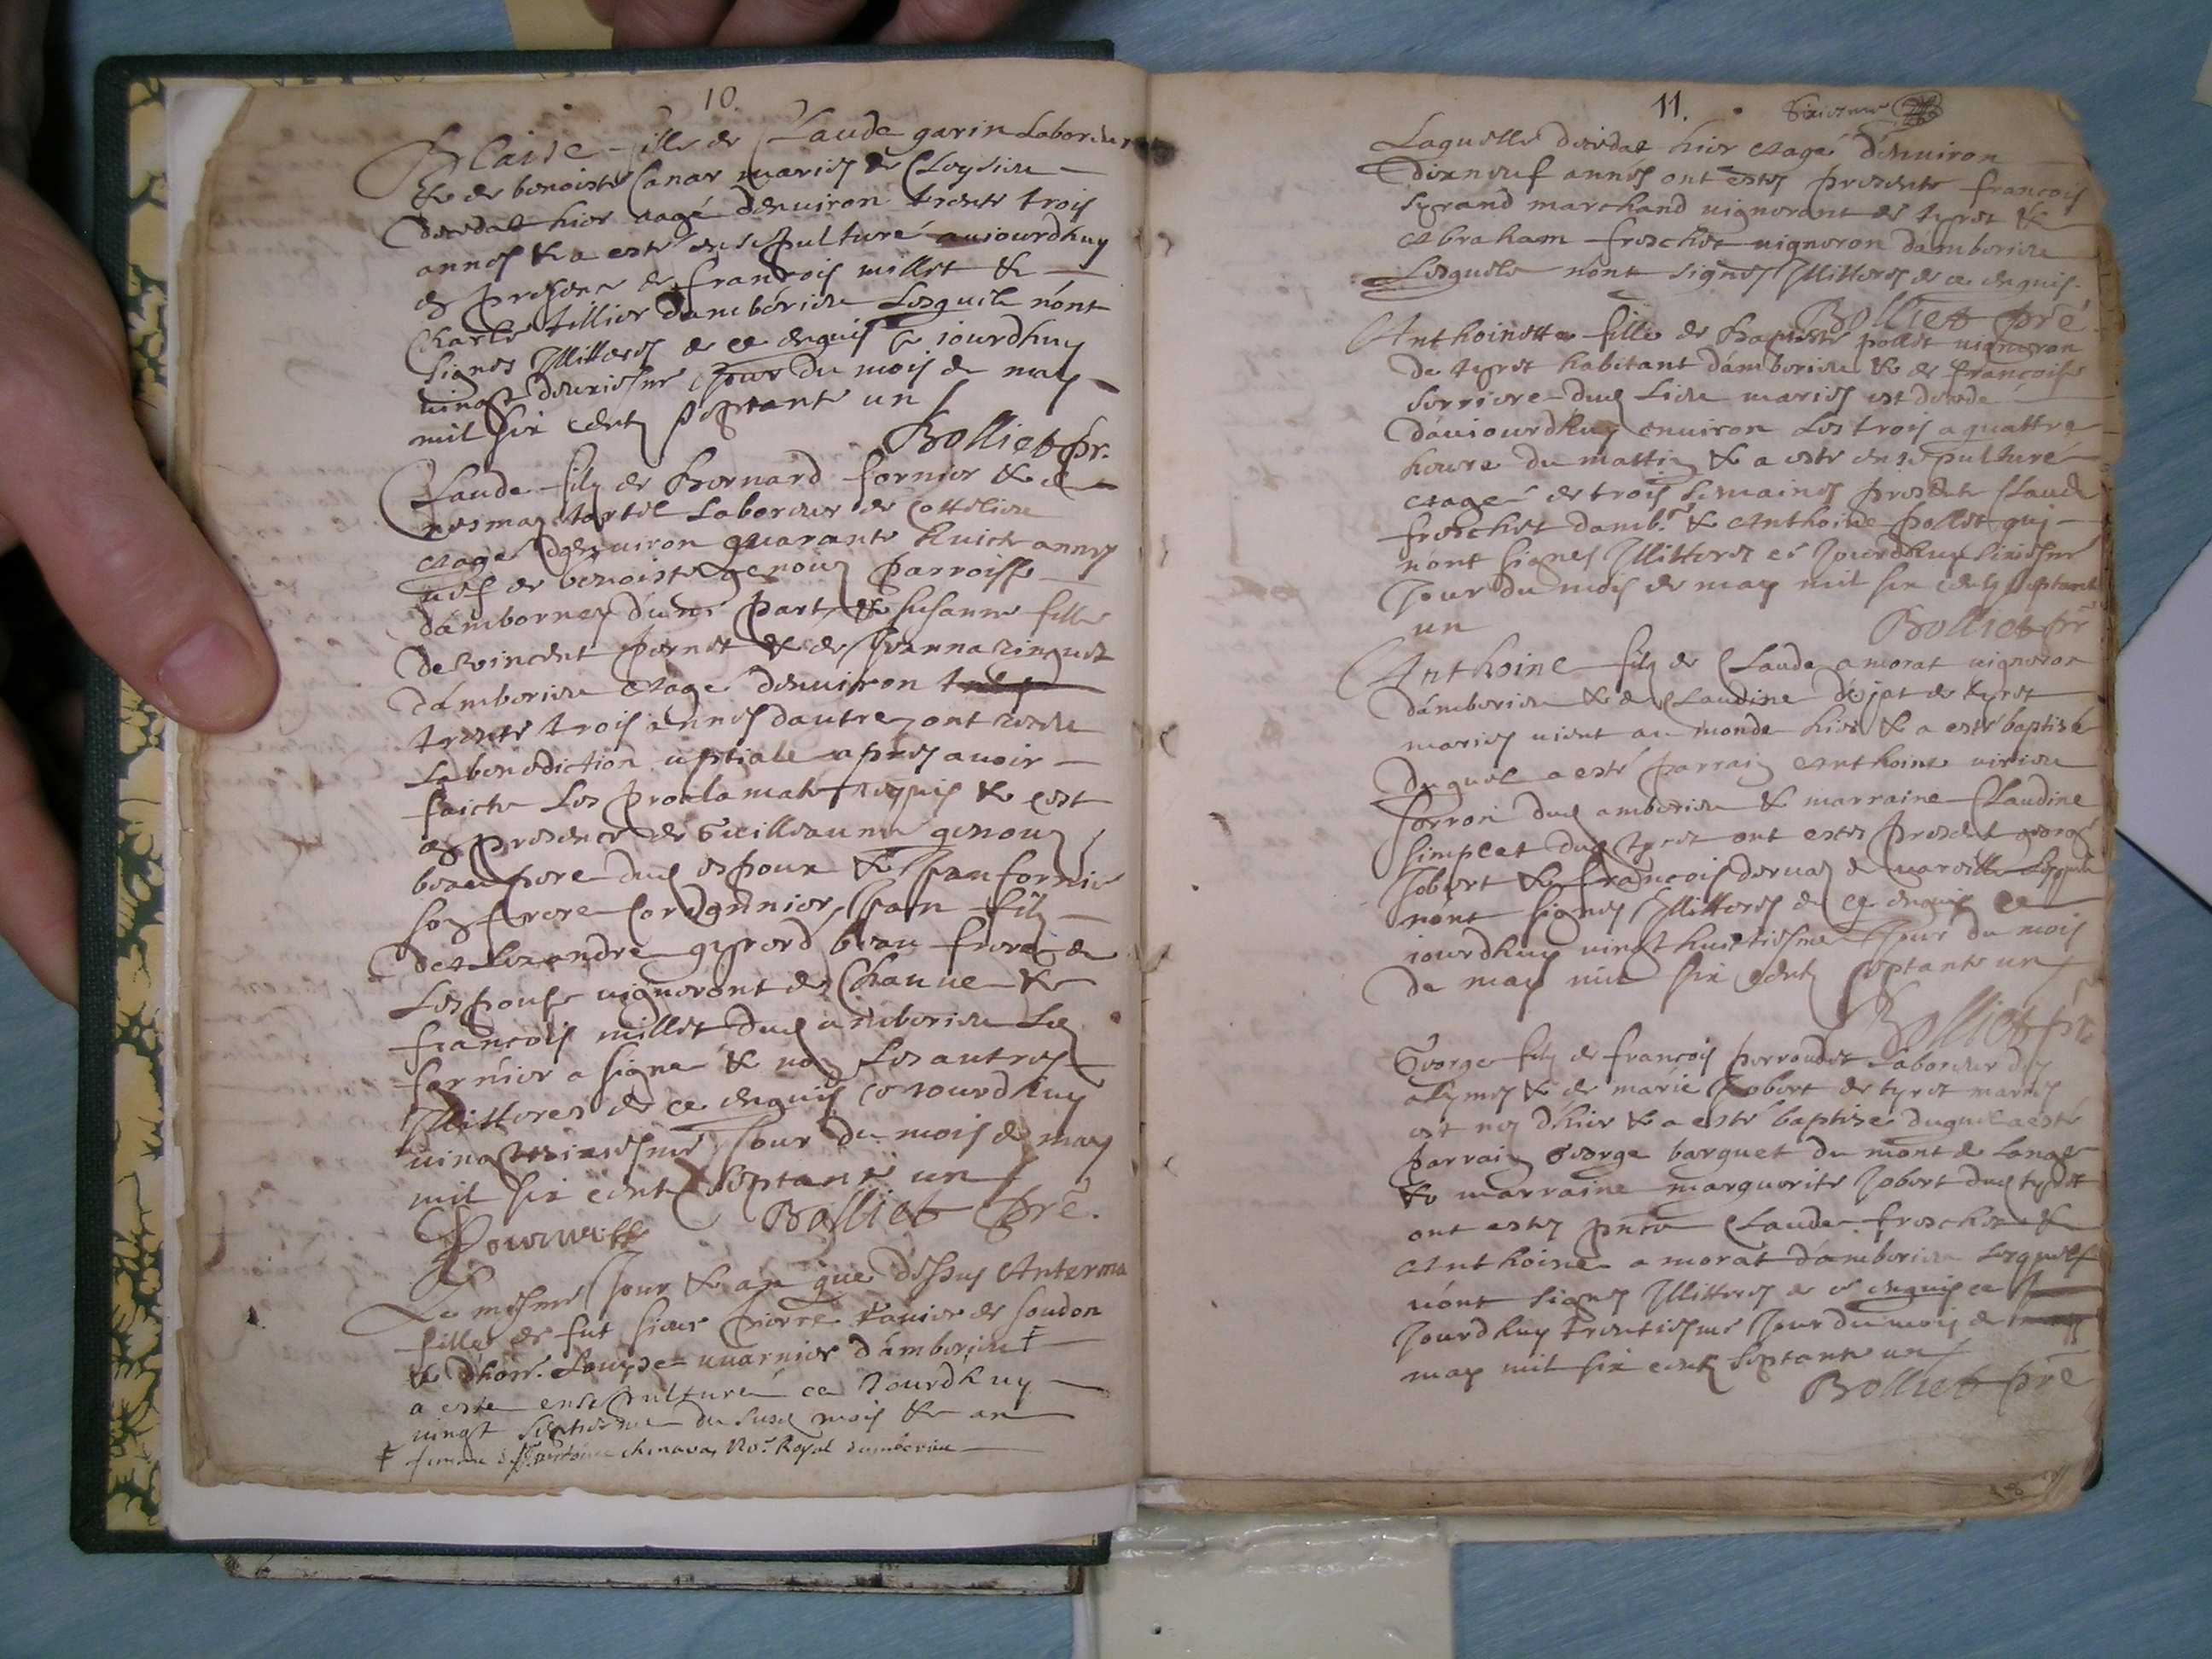 10.
Blaise fille de Claude garin Laboreur
& de benoiste Canar mariés de Cloysieu
deceda hier aagé denuiron trente trois
annés & a esté ensepulturé auiourdhuy
en presence de francois millet &
Charle tillier damberieu Lesquile nont
signes Illiteres de ce enquis ce iourdhuy
uingt deuxiesme Jour du mois de may
mil six cent septante un
Bolliet pr.
Claude filz de Bernard fornier & de
Laboreur de Cottelieu
eage denuiron quarante huict annes
uef de benoiste genouz parroisse
dámborney dune part & Susanne fille
de vincent pernet & de Jeanna
dámberieu eage denuiron
trente trois annes dautre ont receu
La benediction uptiale apres auoir
faicte Les proclamat requis & c'est
en presence de Guilleaume genouz
beaupere dud espoux & Jean fornier
son frere Cordonnier Jean filz
de Alexandre beau frere de
Lespouse uigneront de Chauue &
francois millet dud amberieu Led
fornier a signe & non Les autres
Illiteres de ce enquis ce iourdhuy
uingt Jour du mois de may
mil six cent septante un
Bolliet prê.
Le mesme Jour & an que dessus Anterma
fille de fut sieur pierre tauier de soudon
& dhon. Louyse uuarnier dámberieu ‡
a este ensepulturé ce Jourdhuy
uingt du susd mois & an
‡ femme de Royal damberieu
11.
Laquelle deceda hier eagé dénuiron
dixneuf annés ont estes presente francois
marchand uigneront de tyret &
Abraham froschet uigneron dámberieu
Lesquele nont signes Illiteres de ce enquis.
Bolliet prê
Anthoinette fille de Baptiste pollet uigneron
de tyret habitant dámberieu & de francoise
serriere dud Lieu mariés est decede
dáuiourdhuy enuiron Les trois a quattre
heure du mattin & a este ensepulturé
eagé de trois semaines presente Claude
froschet damb. & Anthoine pollet qui
nont signes Illiteres cé Jourdhuy
Jour du mois de may mil six cents septante
un
Bolliet pr
Anthoine filz de Claude amorat uigneron
dámberieu & de Claudine dejat de tyret
mariés uient au monde hier & a este baptisé
duquel a esté parrain Anthoine uirieu
dud amberieu & marraine Claudine
simplet dud tyret ont estes present george
Jobert & francois deruaz de uareille Lesquele
nont signes Illiteres de ce enquis ce
iourdhuy uingt huictiesme Jour du mois
de may mil six cent septante un
Bolliet pr
George filz de francois perroudet Laboreur des
alymes & de marie Jobert de tyret mariés
est nez dhier & a esté baptisé duquel a esté
parrain George barquet du mont de Lange
& marraine marguerite Jobert dud tyret
ont estes pnte Claude froschet &
Anthoine amorat dámberieu Lesquels
nont signes Illiteres de ce enquis ce
Jourdhuy trentiesme Jour du mois de
may mil six cents septante un
Bolliet prê